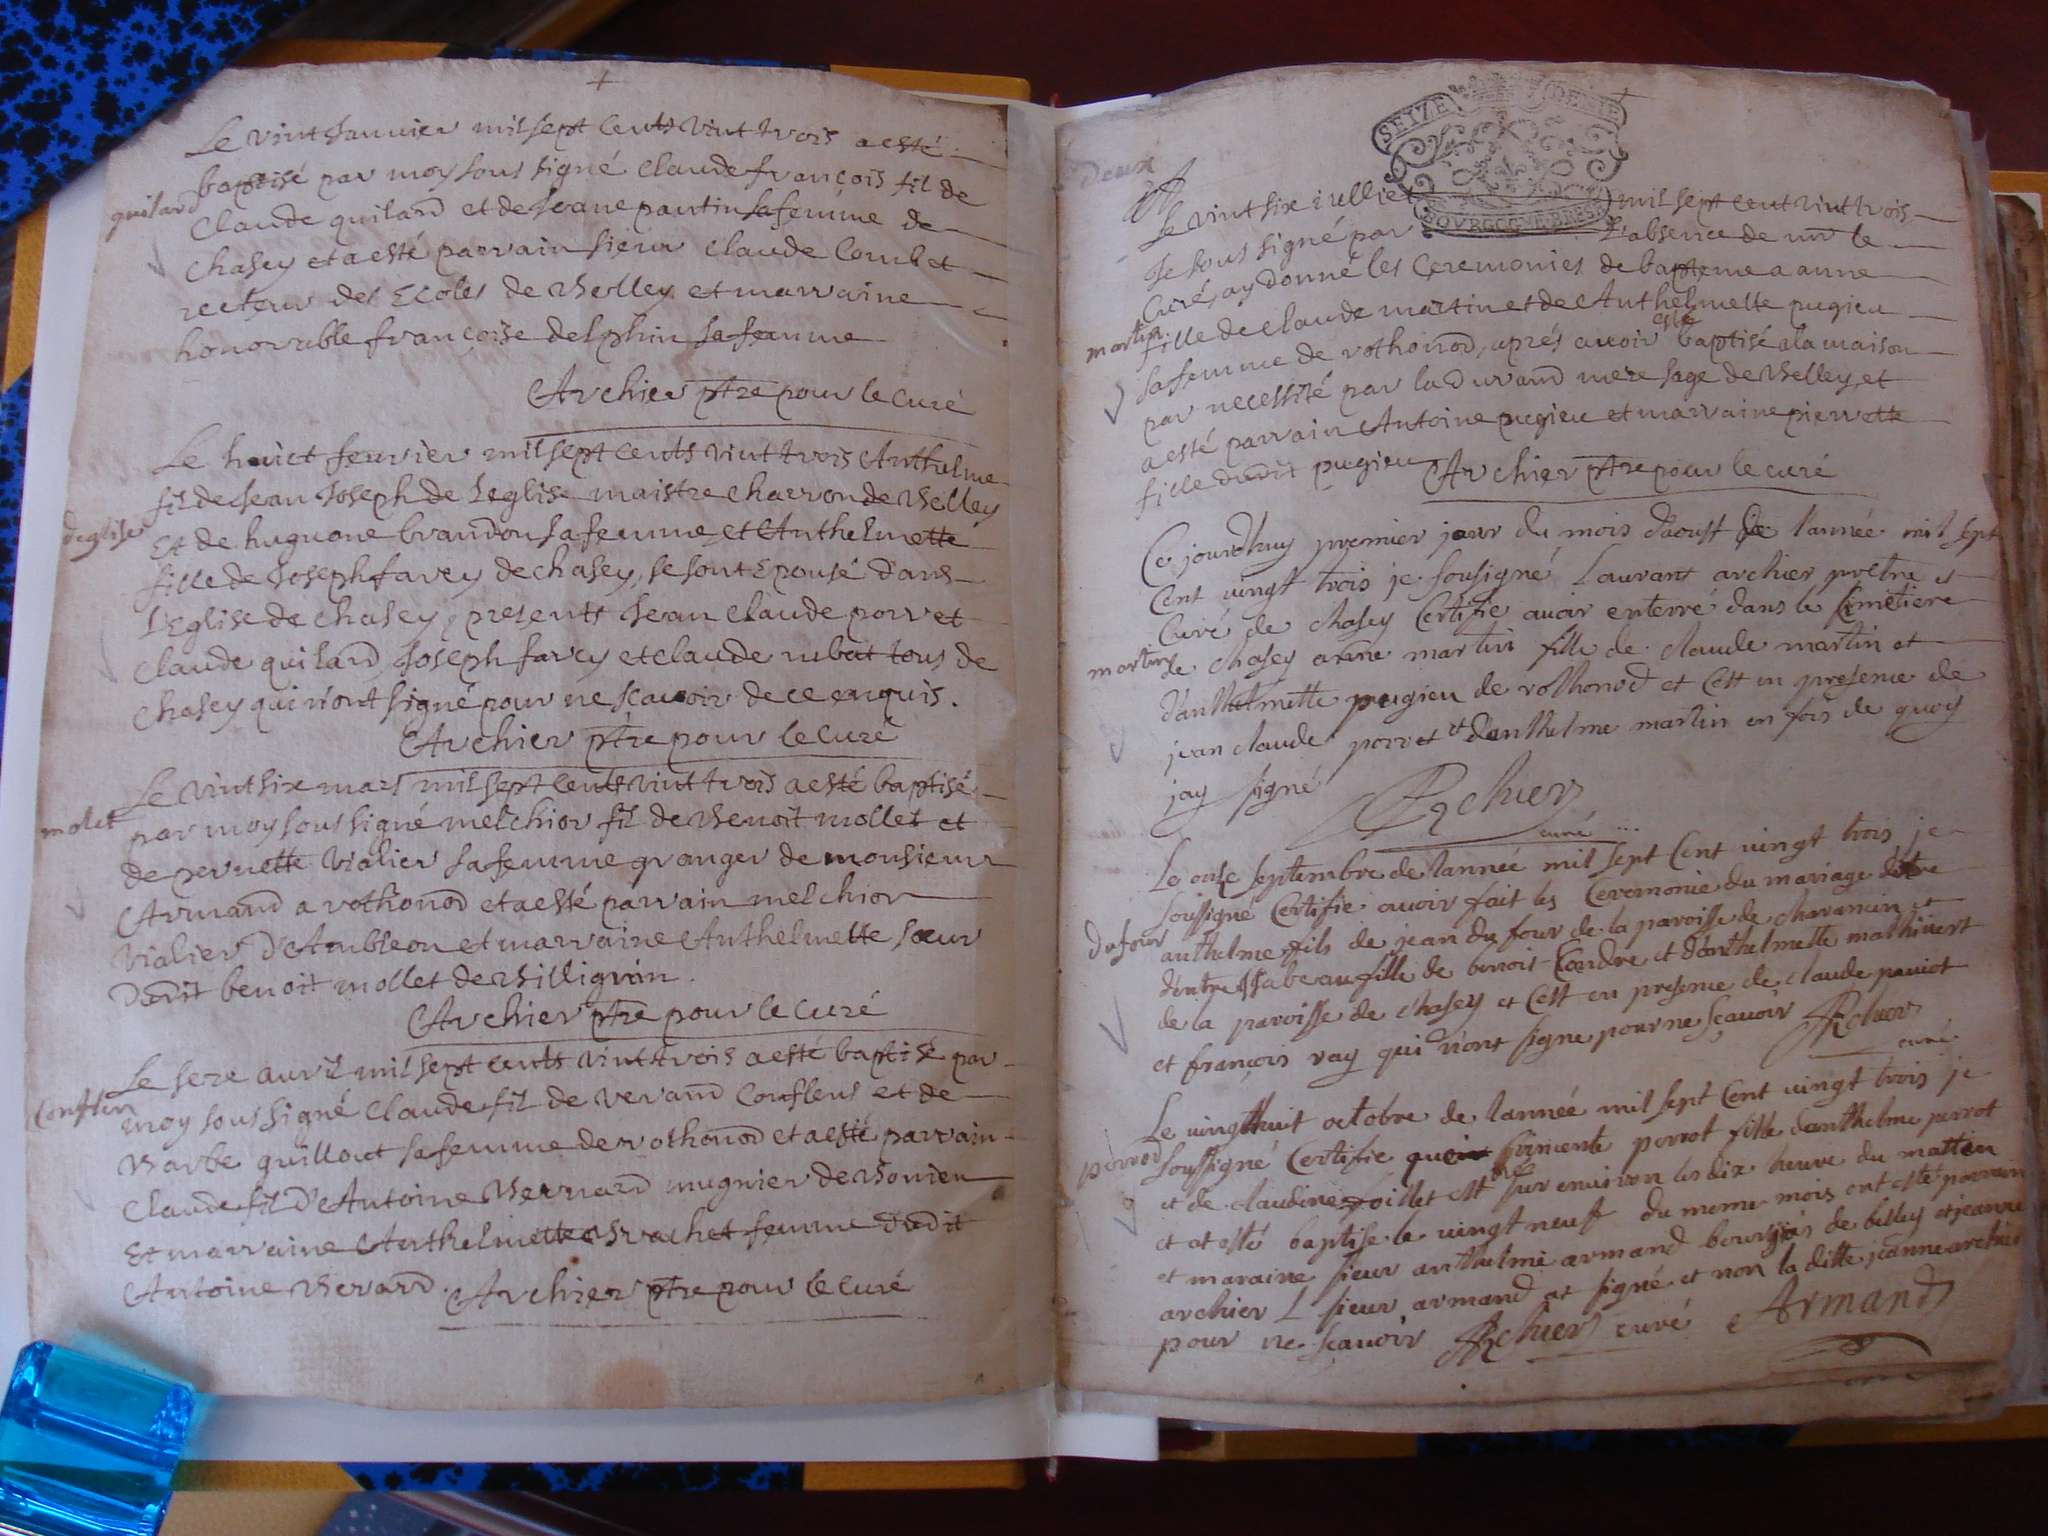 Le vint Janvier mil sept cents vint trois a esté
baptisé par moy sous signé Claude françois fil de
guilard
Claude guilard et de Jeane pantin sa femme de
chasey et a esté parrain sieur Claude Combet
recteur des Ecoles de Belley et marraine
honorable françoise delphin sa femme
Archier ptre pour le curé
Le huict feuvrier mil sept cents vint trois Anthelme
fil de Jean Joseph de Leglise maistre charron de Belley
deglise
Et de huguone brandon sa femme et Anthelmette
fille de Joseph farcy de chasey, se sont Epousé dans
L'Eglise de chasey, presents Jean Claude porret
Claude guilard, Joseph farcy et claude rubat tous de
chasey qui n'ont signé pour ne scavoir de ce enquis.
Archier ptre pour le curé
Le vint six mars mil sept cents vint trois a esté baptisé
molet
par moy sous signé melchior fil de Benoit mollet et
de pernette vialier sa femme granger de monsieur
Armand a rothonod et a esté parrain melchior
vialier D'Ambleon et marraine Anthelmette sœur
Dudit benoit mollet de Billignin.
Archier ptre pour le curé
Le seze auril mil sept cents vint trois a esté baptisé par
Conflen
moy sous signé Claude fil de verand Conflens et de
Barbe guillout sa femme de rothonod et a esté parrain
Claude fil D'Antoine Bernard mugnier de
Et marraine Anthelmette Brachet femme Dudit
Antoine Berard. Archier ptre pour le curé
SEIZE DENIE
BOVRGOGNE BRESSE
Deux
Le vint six iulliet mil sept cent vint trois
Je sous signé par L'absence de mr le
Curé, ay donné les Ceremonies de bapteme a anne
martin
fille de claude martin et de Anthelmette pugieu
sa femme de rothonod, aprés auoir esté baptisé a la maison
par necessité par la Durand mere sage de Belley, et
a esté parrain Antoine pugieu et marraine pierrette
fille dudit pugieu Archier ptre pour le curé
Ce jourdhuy premier jour du mois daoust de l'année mil sept
Cent vingt trois je sousigné Laurant archier pretre et
Curé de chasey Certifie auoir enterré dans le Cimetiere
martin
de chasey anne martin fille de claude martin et
d'anthelmette pugieu de rothonod et cest en presence de
jean claude porret et d'anthelme martin en fois de quoy
jay signé Archier
curé
Le onse septembre de lannée mil sept Cent vingt trois je
soussigné Certifie auoir fait les Ceremonie du mariage dentre
dufour
anthelme fils de jean du four de la paroisse de charancin et
dentre Isabeau fille de benoit Condre et danthelmette mathivert
de la paroisse de chasey et cest en presence de claude paviot
et françois ray qui n'ont signe pour ne sçauoir Archier
curé
Le vingthuit octobre de lannée mil sept Cent vingt trois je
perrod
soussigné Certifie porrot fille danthelme perrot
et de claudine poillet est sur environ les dix heure du mattin
et at esté baptise le vingt neuf du meme mois ont esté parrain
et maraine sieur anthelme armand bourgois de belley et jeanne
archier L sieur armand at signé et non la ditte jeanne archier
pour ne sçauoir Archier curé Armand